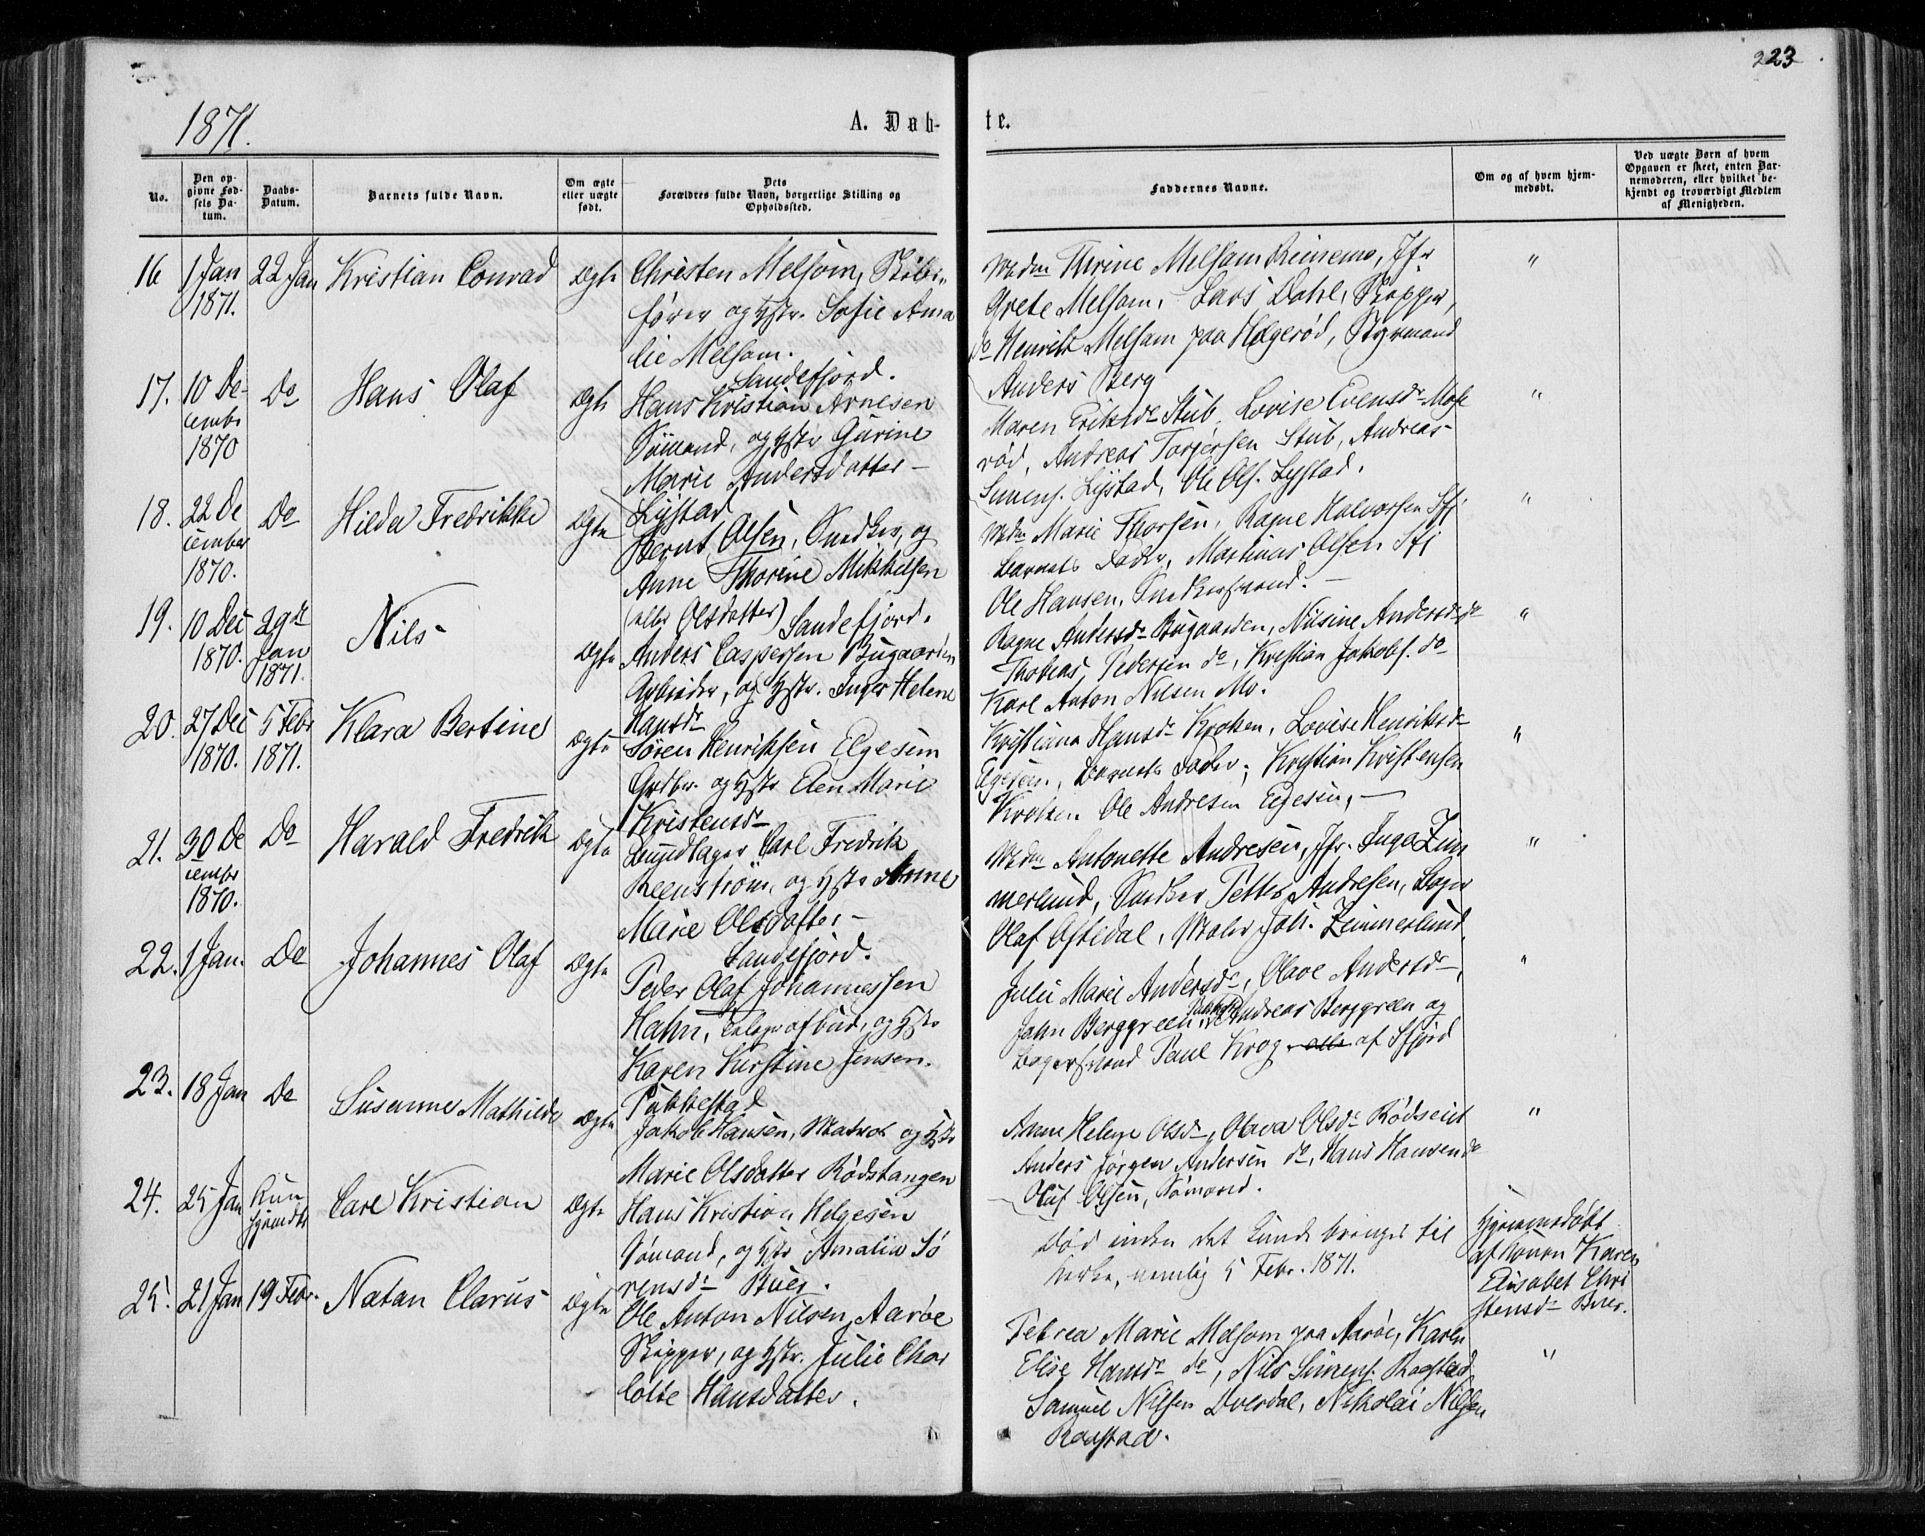 223
1871.
A. Døb-
te.
No.
Den op-
givne Fød-
sels Da-
tum.
Daabs-
Datum.
Barnets fulde Navn.
Om ægte
eller uægte
født.
Dets
Forældres fulde Navn, borgerlige Stilling og
Opholdssted.
Faddernes Navne.
Om og af hvem hjem-
medøbt.
Ved uægte Børn af hvem
Opgaven er skeet, enten Bar-
nemoderen, eller hvilket be-
kjendt og troværdigt Medlem
af Menigheden.
16
1 Jan
1871.
22 Jan
Kristian Conrad
Ægte
Christen Melsom, Skibs-
fører og Hstr. Sofie Ama
lie Melsom.
Sandefjord.
Mdm Thrine Melsom Reinemo, Jfr
Grete Melsom, Lars Dahl, Skipper,
do Henrik Melsom paa Hegerød, Styrmand
Anders Berg
"
17.
10 De-
cembr
1870
Do
Hans Olaf
Ægte
Hans Kristian Arnesen
Sømand, og Hstr Gurine
Marie Andersdatter -
Lystad
Maren Eriksdr Stub, Lovise Evensdr Mose
rød, Andreas Torgersen Stub, Andreas
Simens. Lystad, Ole Ols. Lystad.
"
18.
22 De
cember
1870.
Do
Hilda Fredrikke
Ægte
Bernt Olsen, Snedker, og
Anne Thorine Mikkelsen
(eller Olsdatter) Sandefjord.
Mdm Marie Thorsen, Ragne Halvorsen Sfj
Barnets Fader, Martinus Olsen Sfj
Ole Hansen, Snedkersvend. -
"
19.
10 Dec
1870.
29de
Jan
1871.
Nils -
Ægte
Anders Caspersen Bugaarden
Arbeider, og Hstr. Inger Helene
Hansdr
Ragne Andersdr Bugaarden, Nilsine Andersdr do
Thobias Pedersen do, Kristian Jakobs. do
Karl Anton Nilsen Mo.
"
20.
27 Dec
1870.
5 Febr
1871.
Klara Bertine
Ægte
Søren Henriksen Egesim
Grdbr. og Hstr Elen Marie
Kristensdr
Kristiana Hansdr Kroken, Lovise Henriksdr
Egesim, Barnets Fader, Kristian Kristensen
Kroken Ole Andresen Egesim, -
"
21.
30 De
cembr
1870.
Do
Harald Fredrik
Ægte
Carl Fredrik
Reenstrøm, og Hstr Anne
Marie Olsdatter -
Sandefjord.
Mdm Antonette Andresen, Jfr. Inga Zim
merlund, Snedker Petter Andresen, Bager
Olaf Oftedal, Maler Joh. Zimmerlund.
"
22.
1 Jan.
Do
Johannes Olaf
Ægte
Peder Olaf Johannessen
Hahn, Telegrafbud, og Hstr
Karen Kirstine Jensen.
Pukkestad
Julie Marie Andersdr, Olave Andersdr,
John Berggreen, Andreas Berggreen og
Bagersvend Paul Krog af Sfjord
"
23.
18 Jan
Do
Susanne Mathilde
Ægte
Jakob Hansen, Matros og Hstr
Marie Olsdatter Rødstangen
Anne Helene Olsdr, Olava Olsdr Rødseiet
Anders Jørgen Andersen do, Hans Hansen do
Oluf Olsen, Sømand.
"
24.
25 Jan
Kun
hjemdbt
Carl Kristian
Ægte
Hans Kristian Helgesen
Sømand, og Hstr Amalia Sø
rensdr Buer.
Død inden det kunde bringes til
Kirke, nemlig 5 Febr. 1871.
Hjemmedøbt
af Konen Karen
Elisabet Chri
stensdr Buer.
25.
21 Jan
19 Febr.
Natan Clarus
Ægte
Ole Anton Nilsen Aarøe
Skipper, og Hstr. Julie Char
lotte Hansdatter.
Febrea Marie Melsom paa Aarøe, Karen
Elise Hansdr do, Nils Simens. Raastad
Samuel Nilsen Dverdal, Nikolai Nilsen
Raastad.
"